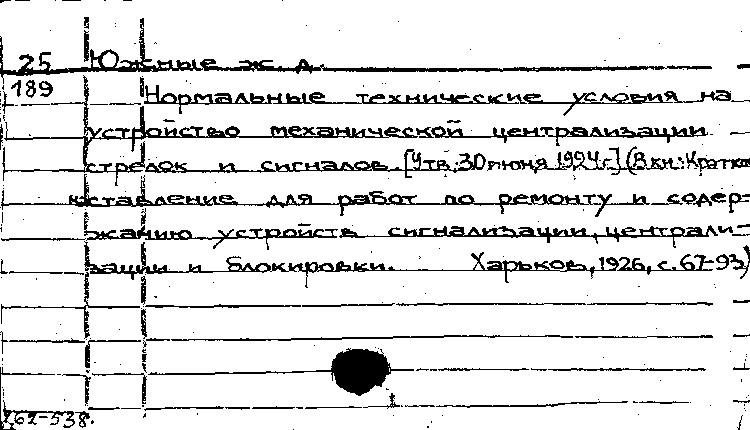 25 Южные ж. д.
189 Нормальные технические условия на
устройство механической централизации
стрелок и сигналов. [Утв. 30 июня 1924 г.] (В кн.: Краткое
наставление для работ по ремонту и содер-
жанию устройств сигнализации, централи-
зации и блокировки. Харьков, 1926, с. 67-93)
262-538.